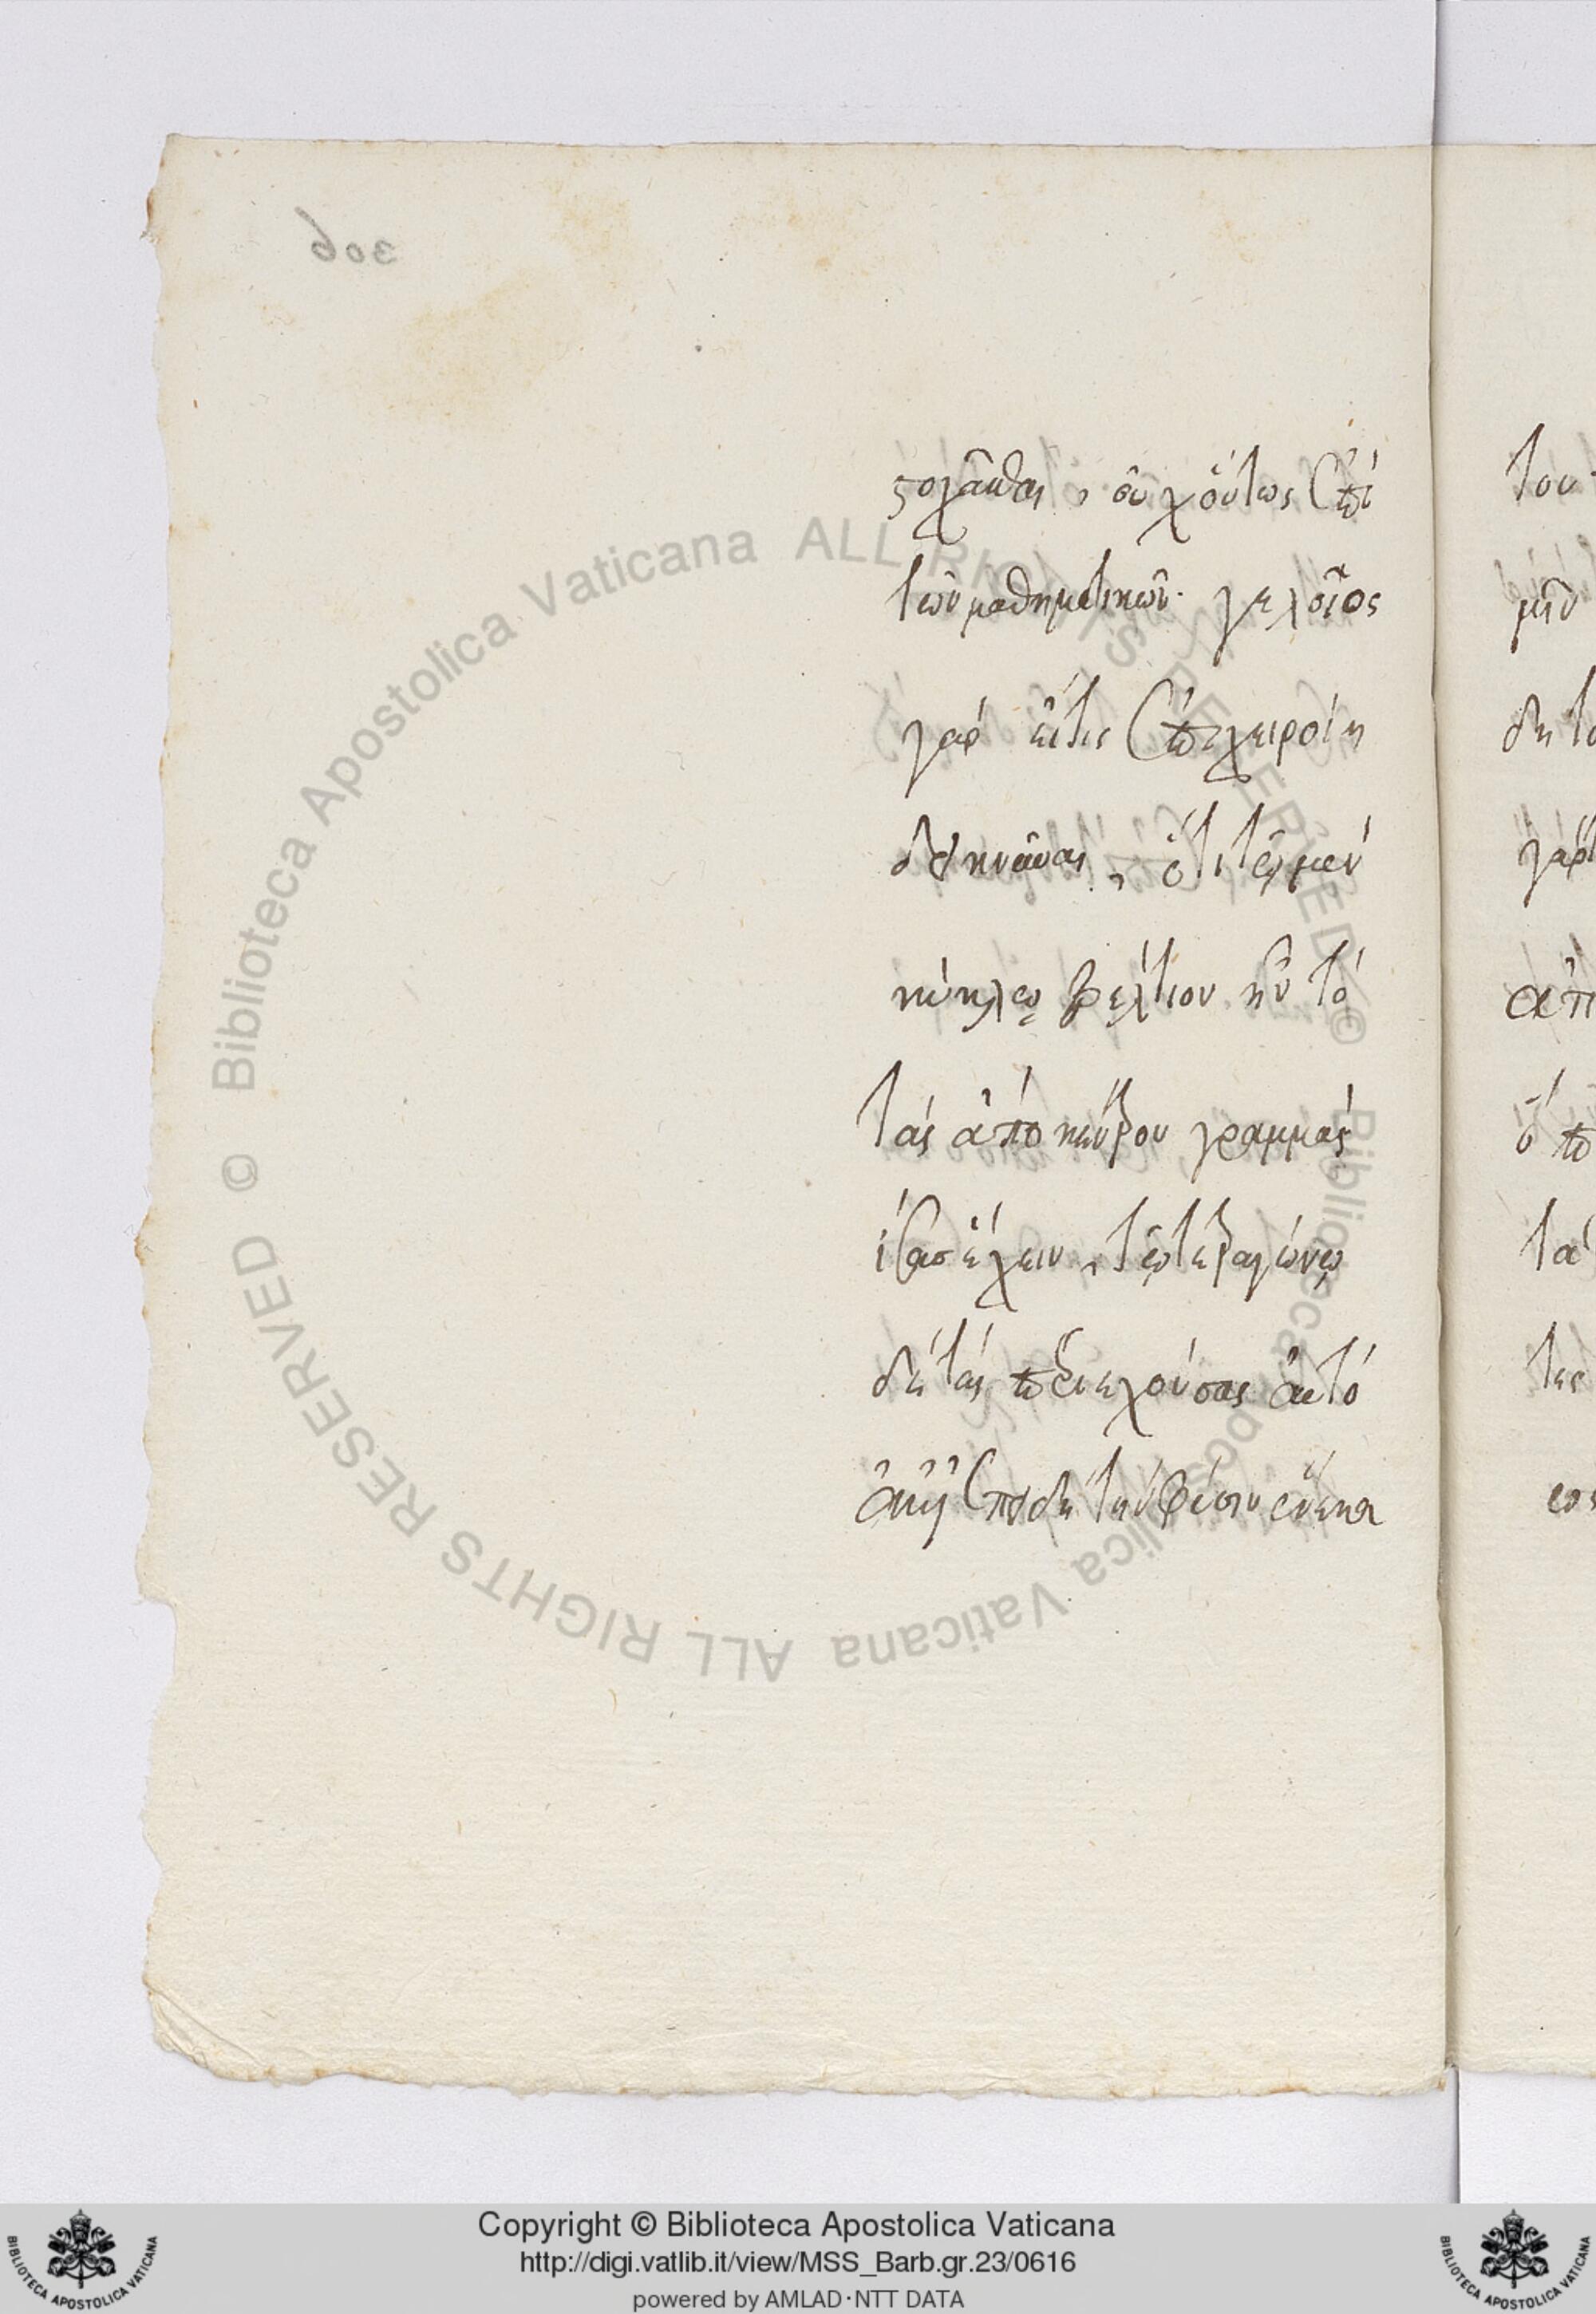 306
στοχᾶσθαι, οὐχ οὕτως ἐπὶ
του
τῶν μαθηματικῶν. γελοῖος
μῖν
γὰρ εἴτις ἐπιχειροίη
δη το
δεικνῦναι, ὅτι τῷ μὲν
γὰρ
κύκλῳ βέλτιον ἦν τὸ
τὰς ἀπὸ κέντρου γραμμὰς
ἴσας ἔχειν, τῷ τετραγώνῳ
τὰ
δὲ τὰς περιεχούσας αὐτό
τες
ἀεὶ ἐπειδὴ τὴν φύσιν ἕνεκα
Biblioteca Apostolica Vaticana ALL RIGHTS RESERVED ©
Biblioteca Apostolica Vaticana ALL RIGHTS RESERVED ©
Copyright © Biblioteca Apostolica Vaticana
http://digi.vatlib.it/view/MSS_Barb.gr.23/0616
powered by AMLAD·NTT DATA
BIBLIOTECA APOSTOLICA VATICANA
BIBLIOTECA APOSTOLICA VATICANA